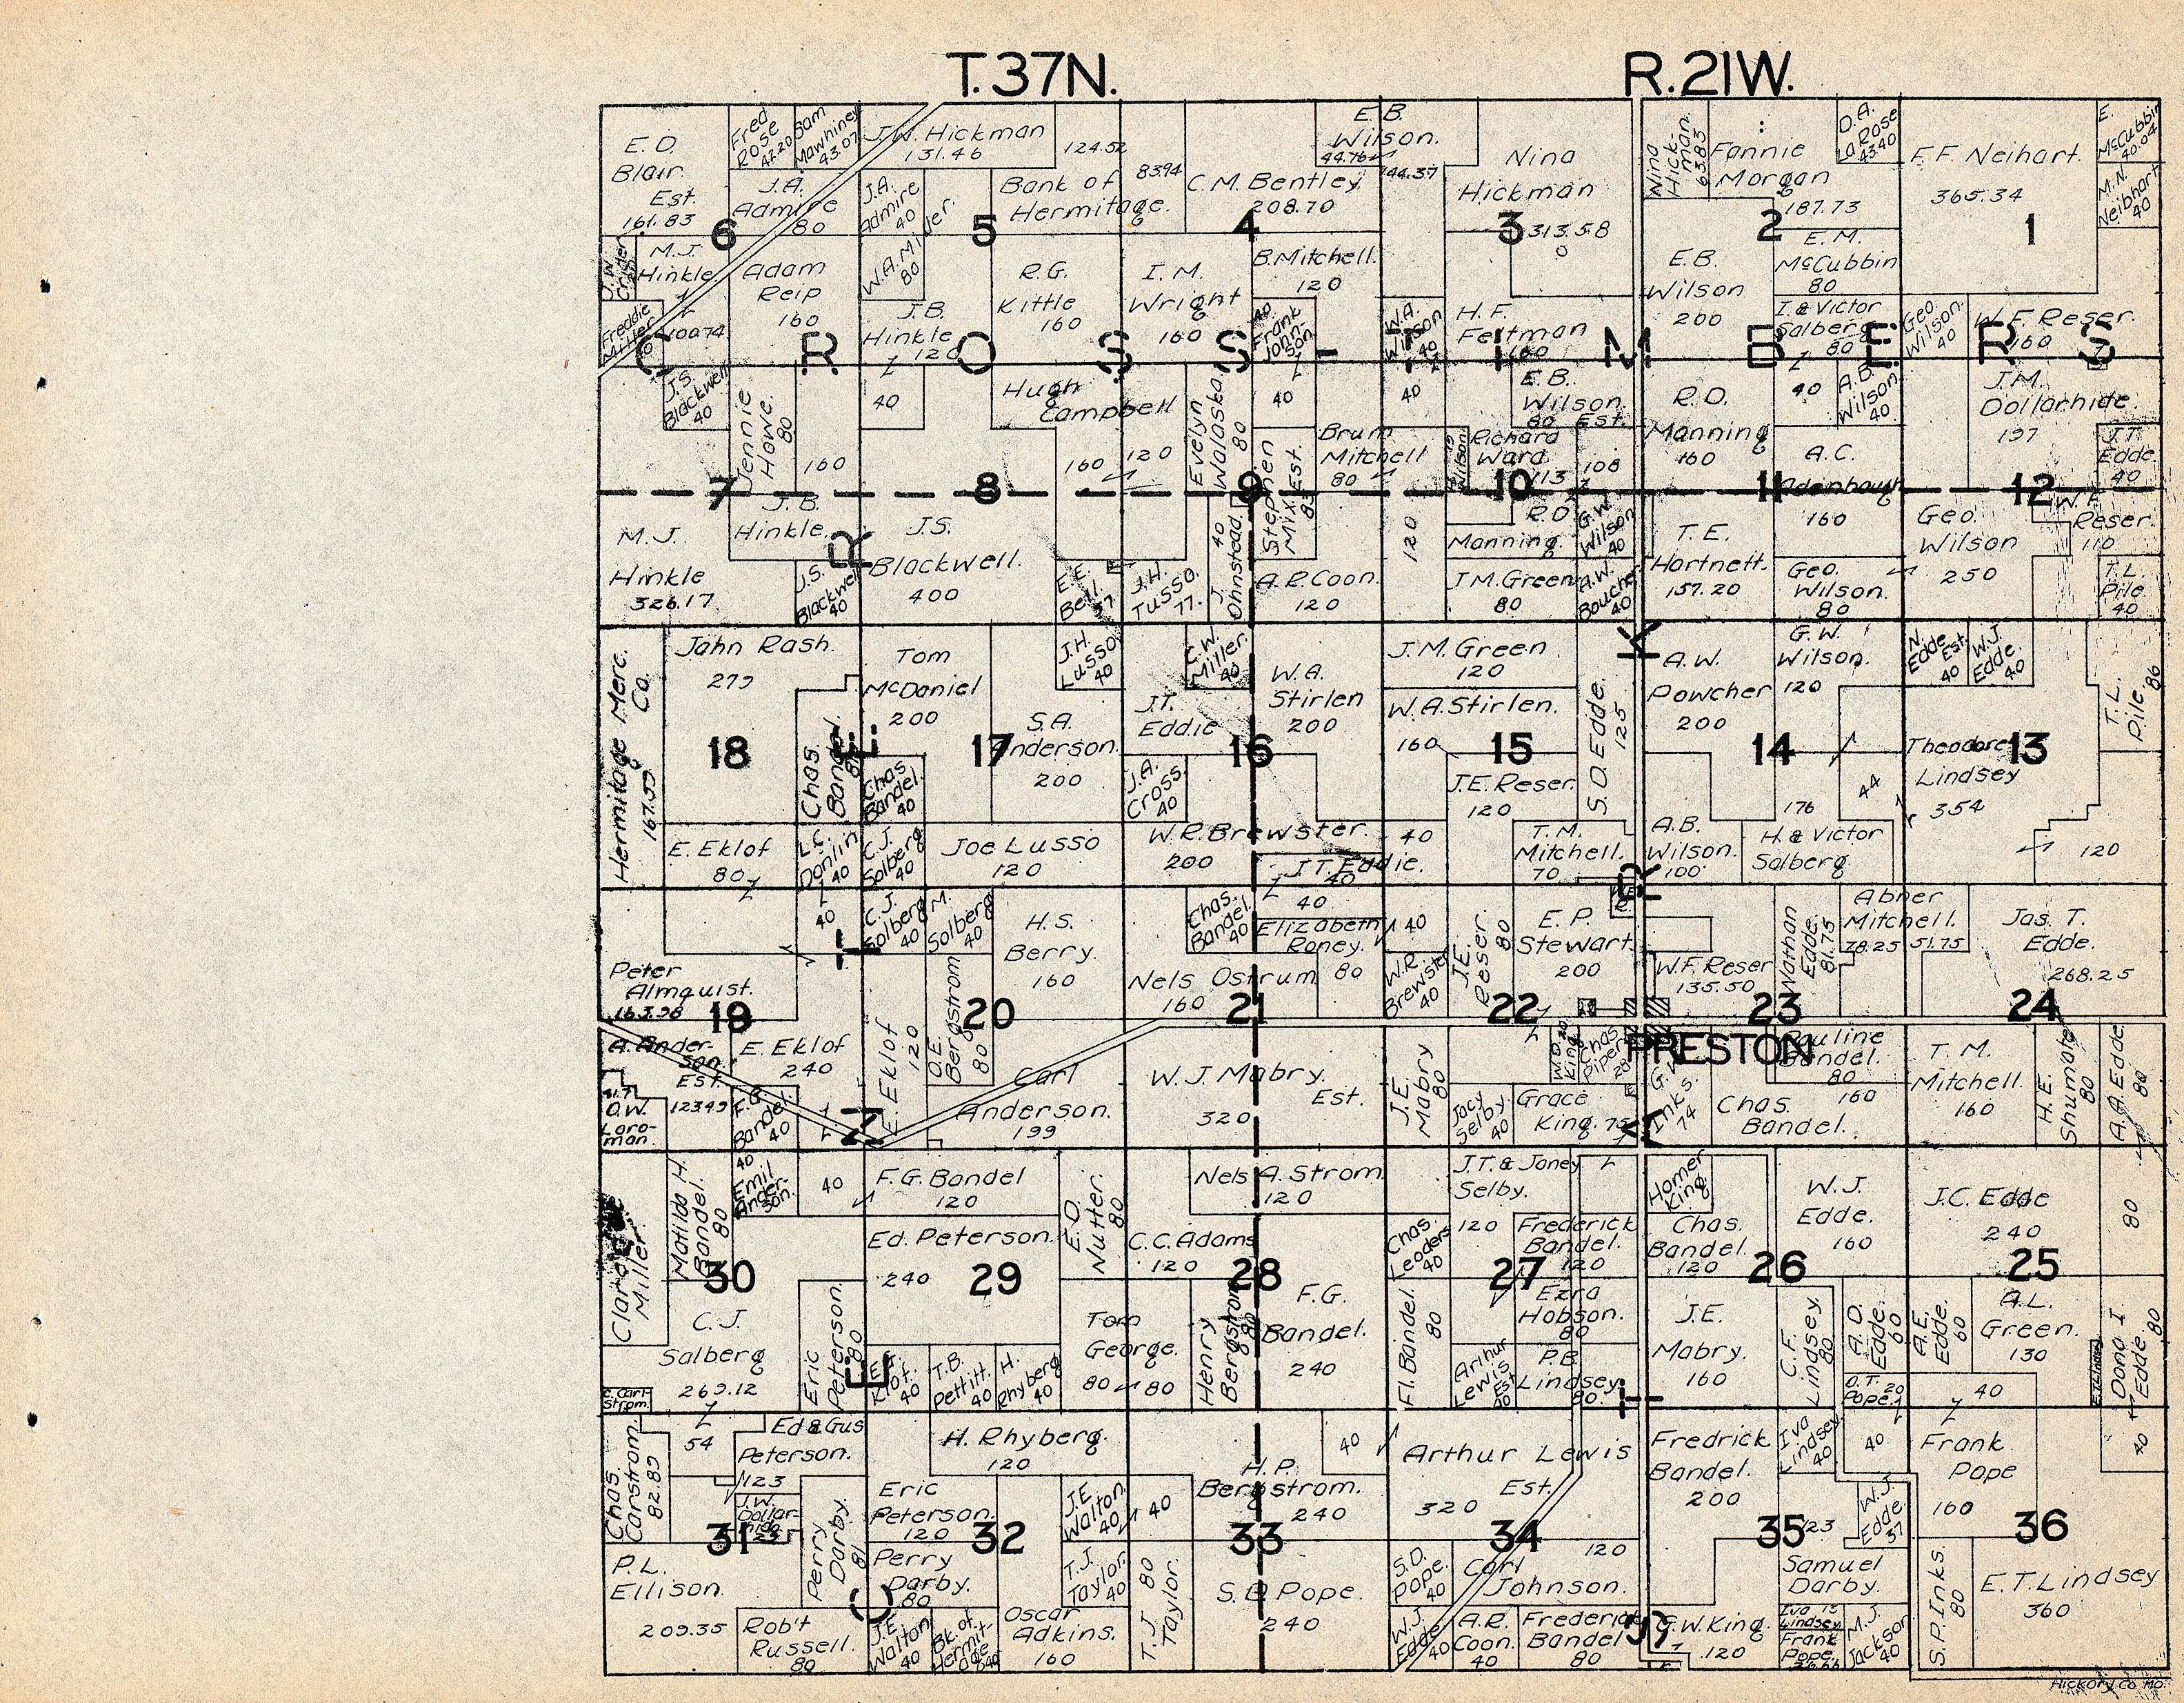 T.37N.
R.21W.
E.O.
Blair
Est.
161.83
Fred
Rose
42.20
Sam
Mawhiney
43.07
J.W. Hickman
131.46
124.52
83.94
E.B.
Wilson.
44.76
144.37
Nina
Hickman
313.58
Nina
Hick-
man.
63.83
Fannie
Morgan
187.73
D.A.
LaRose
43.40
F.F. Neihart.
365.34
E.
McCubbin
40.04
M.N.
Neibhart
40
J.A.
Admire
80
J.A.
Admire
40
W.A. Miller.
80
Bank of
Hermitage.
C.M. Bentley
208.70
6
5
4
3
2
1
J.W.
Crider
M.J.
Hinkle
100.74
Freddie
Miller
Adam
Reip
160
J.B.
Hinkle
120
R.G.
Kittle
160
I.M.
Wright
160
B. Mitchell.
120
40
Frank
John-
son.
W.A.
Wilson
40
H.F.
Feltman
160
E.B.
Wilson
200
E.M.
McCubbin
80
I. & Victor
Salberg
80
Geo.
Wilson.
40
W.F. Reser.
160
CROSS TIMBERS
J.S.
Blackwell
40
Jennie
Howe.
80
160
40
Hugh
Campbell
160
120
Evelyn
Walaska
80
40
Stephen
Mix Est.
83
Brum
Mitchell
80
40
E.B.
Wilson.
80 Est.
Wilson
Richard
Ward
113
108
R.O.
Manning
160
40
A.B.
Wilson
40
A.C.
Adenbaugh
160
J.M.
Dollarhide.
197
J.T.
Edde.
40
7
8
9
10
11
12
M.J.
Hinkle
326.17
J.B.
Hinkle.
J.S.
Blackwell
40
J.S.
Blackwell.
400
E.E.
Bell.
37
J.H.
Tusso.
77.
J.
Ohnstead.
40
A.P. Coon.
120
120
R.O.
Manning.
J.M. Green
80
G.W.
Wilson
40
A.W.
Boucher
40
T.E.
Hartnett.
157.20
Geo.
Wilson.
80
Geo.
Wilson
250
W.F.
Reser.
110
T.L.
Pile
40
Hermitage Merc.
Co.
167.53
John Rash.
279
Chas.
Bandel
Tom
McDaniel
200
Chas
Bandel.
40
S.A.
Anderson.
200
J.H.
Lusso
40
J.T.
Eddie
C.W.
Miller.
40
J.A.
Cross.
40
W.A.
Stirlen
200
J.M. Green
120
W.A. Stirlen.
160
J.E. Reser.
120
S.O. Edde.
125
A.W.
Powcher
200
G.W.
Wilson.
120
176
44
N.
Edde Est.
40
W.J.
Edde.
40
Theodore
Lindsey
354
T.L.
Pile.
86
18
17
16
15
14
13
E. Eklof
80
L.C.
Donlin
40
C.J.
Solberg
40
Joe Lusso
120
W.R. Brewster.
200
J.T. Eddie.
40
40
T.M.
Mitchell.
70
A.B.
Wilson.
100
H. & Victor
Salberg.
120
Peter
Almquist.
163.98
40
C.J.
Solberg
40
M.
Solberg
40
H.S.
Berry.
160
Chas.
Bandel.
40
40
Elizabeth
Roney.
80
Nels Ostrum
160
40
W.R.
Brewster
40
J.E.
Reser.
80
E.P.
Stewart.
200
W.F. Reser
135.50
Nathan
Edde.
81.75
Abner
Mitchell.
78.25
51.75
Jas. T.
Edde.
268.25
19
20
21
22
23
24
PRESTON
A. Ander-
son.
Est.
123.49
O.W.
Laro-
man.
E. Eklof
240
F.G.
Bandel.
40
E. Eklof
120
O.E.
Bergstrom
80
Carl
Anderson.
199
W.J. Mabry.
Est.
320
J.E.
Mabry
80
Jacy
Selby.
40
W.O.
King.
Chas.
Piper
28
Grace
King. 75
G.W.
Inks.
74
Pauline
Bandel.
80
160
Chas.
Bandel.
T.M.
Mitchell.
160
H.E.
Shumate
80
A.A. Edde
80
Clark
Miller
Matilda H.
Bandel.
80
40
Emil
Ander-
son.
40
F.G. Bandel
120
Ed. Peterson.
240
E.O.
Nutter.
80
Nels A. Strom
120
C.C. Adams
120
Chas.
Leoders
40
J.T. & Janey
Selby.
120
Frederick
Bandel.
120
Homer
King.
Chas.
Bandel.
120
W.J.
Edde.
160
J.C. Edde
240
80
30
29
28
27
26
25
C.J.
Salberg
269.12
C. Carl-
strom.
Eric
Peterson.
80
E.F.
Klof.
40
T.B.
Pettitt.
40
H.
Rhyberg
40
Tom
George.
80
80
Henry
Bergstrom
80
F.G.
Bandel.
240
Fl. Bandel.
80
Arthur
Lewis
Est.
40
Ezra
Hobson.
80
P.B.
Lindsey.
80.
J.E.
Mabry.
160
C.F.
Lindsey.
80
A.O.
Edde.
60
O.T.
Pope.
20
A.E.
Edde.
60
A.L.
Green.
130
40
E.T. Lindsey
Dona I.
Edde
80
Chas.
Carstrom.
82.89
54
Ed & Gus
Peterson.
123
J.W.
Dollar-
hide
Perry
Darby.
81
H. Rhyberg.
120
Eric
Peterson.
120
J.E.
Walton.
40
40
H.P.
Bergstrom.
240
40
Arthur Lewis
Est.
320
Fredrick
Bandel.
200
Iva
Lindsey.
40
40
W.J.
Edde
37
123
Frank
Pope
160
40
31
32
33
34
35
36
P.L.
Ellison.
209.35
Rob't
Russell.
80
Perry
Darby.
80
J.E.
Walton
40
Bk. of
Hermit-
age
40
Oscar
Adkins.
160
T.J.
Taylor.
40
T.J.
Taylor.
80
S.D. Pope.
240
S.D.
Pope.
40
W.J.
Edde
40
Carl
Johnson.
120
A.R.
Coon.
40
Frederick
Bandel
80
G.W. King.
120
Samuel
Darby.
Iva
Lindsey.
Frank
Pope.
M.J.
Jackson
40
S.P. Inks.
80
E.T. Lindsey
360
Hickory Co. Mo.